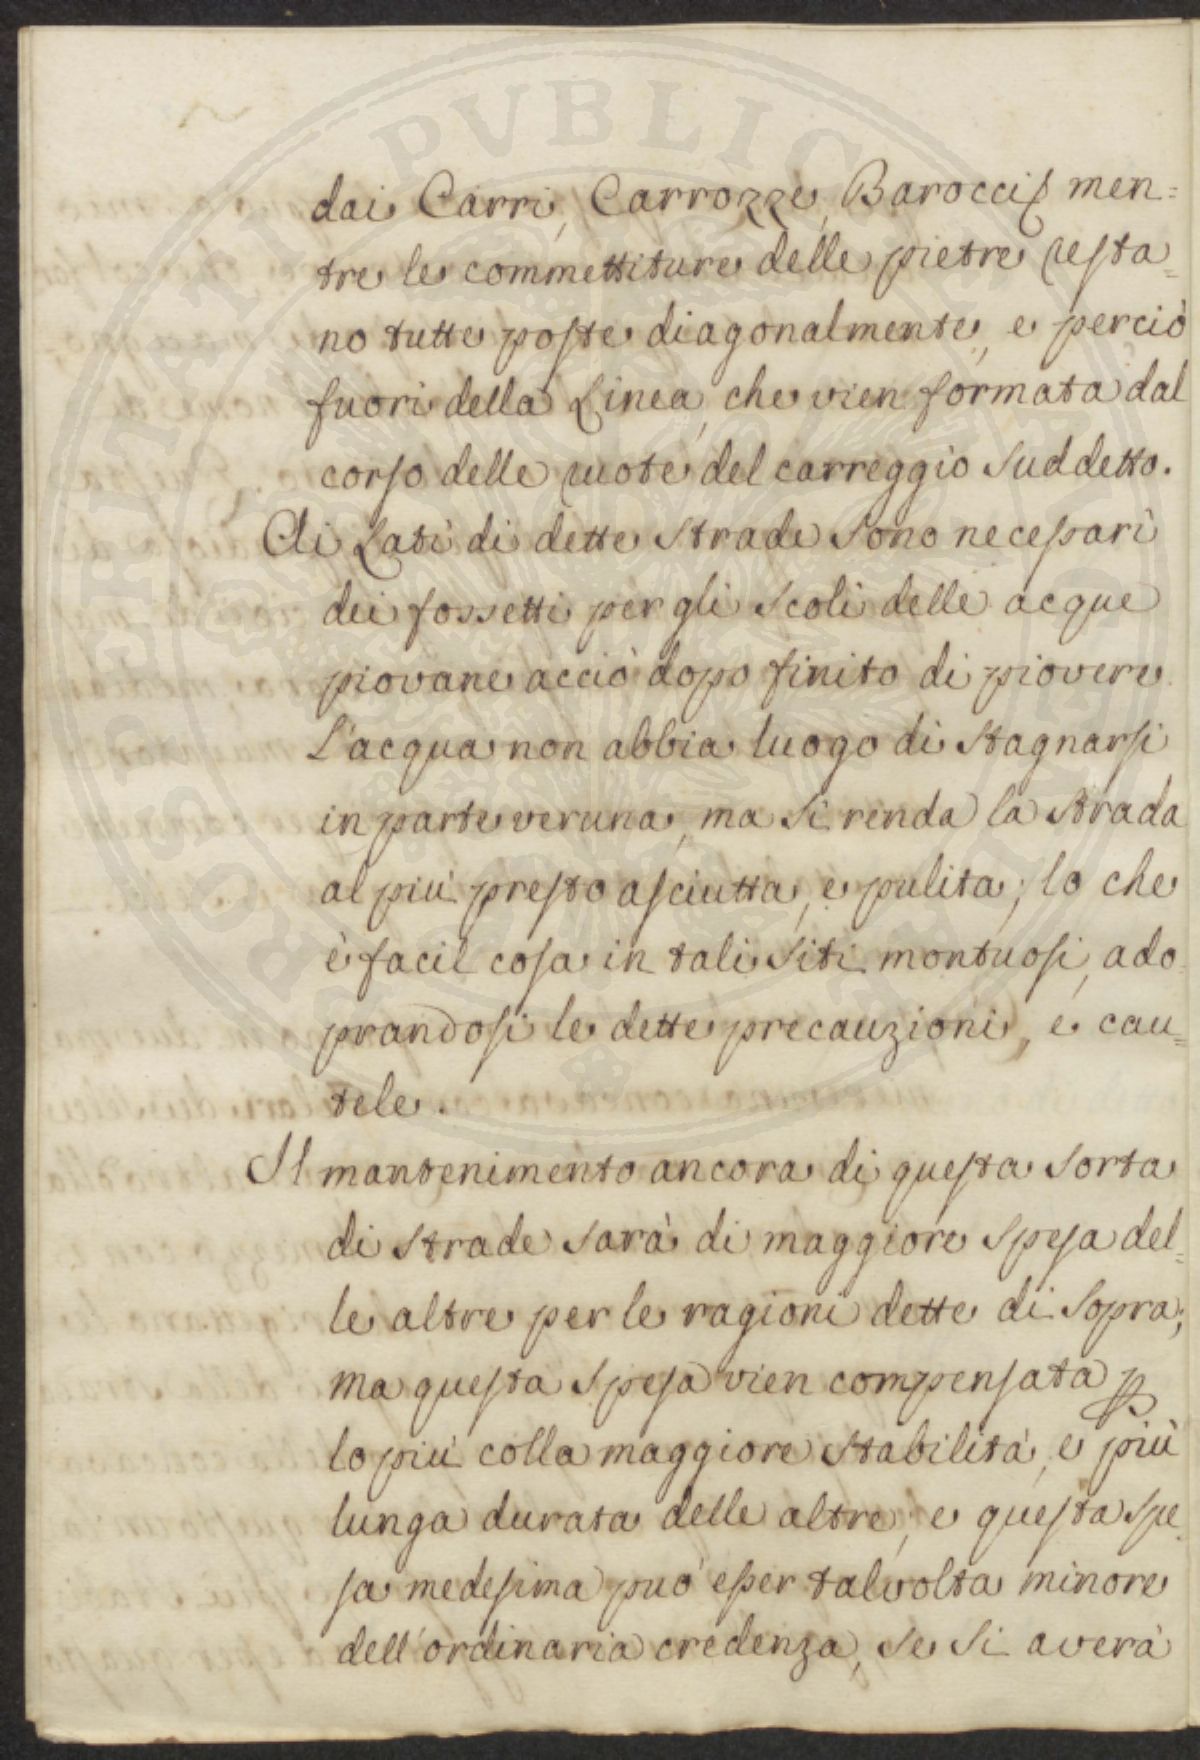 dai Carri, Carrozze, Barocci mentre
tre le commettiture delle pietre resta=
no tutte poste diagonalmente, e perciò
fuori della Linea, che vien formata dal
corso delle ruote del carreggio suddetto.
Ai Lati di dette Strade sono necessarì
dei fossetti per gli scoli delle acque
piovane acciò dopo finito di piovere
l'acqua non abbia luogo di stagnarsi
in parte veruna, ma si renda la strada
al più presto asciutta, e pulita; lo che
è facil cosa in tali siti montuosi, ado
prandosi le dette precauzioni, e cau=
tele.
Il mantenimento ancora di questa sorta
di strade sarà di maggiore spesa del=
le altre per le ragioni dette di sopra;
ma questa spesa vien compensata p
lo più colla maggiore stabilità, e più
lunga durata delle altre; e questa spe
sa medesima può esser talvolta minore
dell'ordinaria credenza, se si averà
PROSPERITATI PVBLICAE